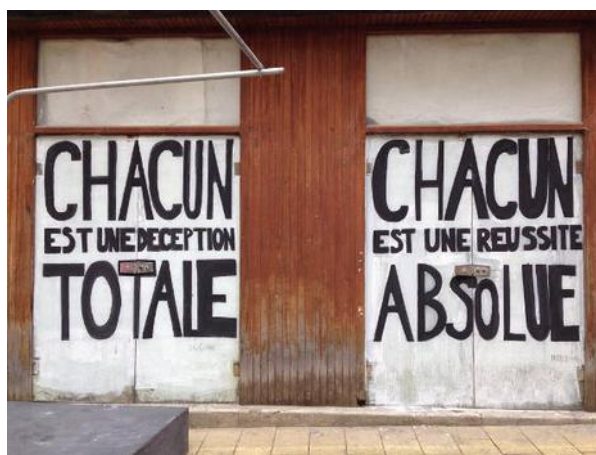 CHACUN
EST UNE DECEPTION
TOTALE
CHACUN
EST UNE REUSSITE
ABSOLUE